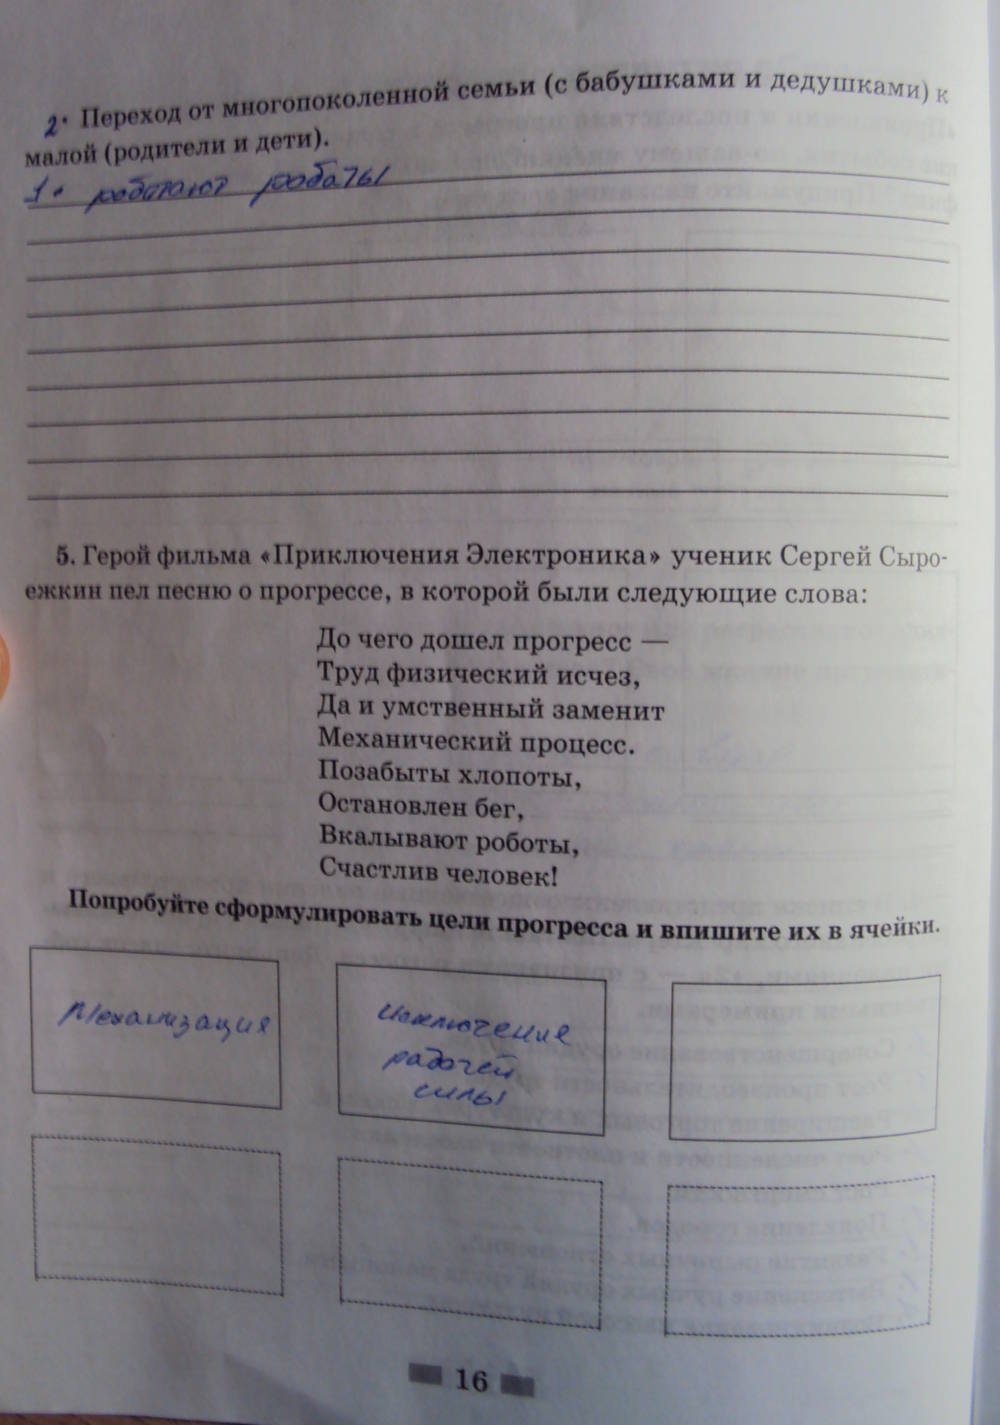 2. Переход от многопоколенной семьи (с бабушками и дедушками) к
малой (родители и дети).
1. работают роботы
5. Герой фильма «Приключения Электроника» ученик Сергей Сыро-
ежкин пел песню о прогрессе, в которой были следующие слова:
До чего дошел прогресс —
Труд физический исчез,
Да и умственный заменит
Механический процесс.
Позабыты хлопоты,
Остановлен бег,
Вкалывают роботы,
Счастлив человек!
Попробуйте сформулировать цели прогресса и впишите их в ячейки.
Механизация
исключение
рабочей
силы
16